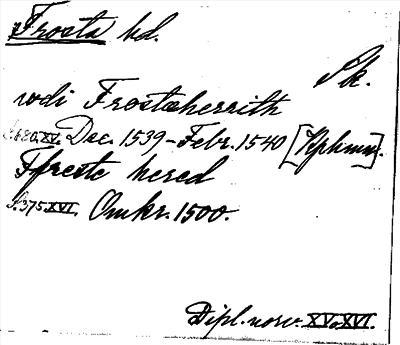 Frosta hd.
Sk.
udi Frostæherrith
S.680.XV. Dec. 1539-Febr. 1540 [Kphmn].
Ffreste hered
S.375.XVI. Omkr. 1500.
Dipl. norv. XV.XVI.